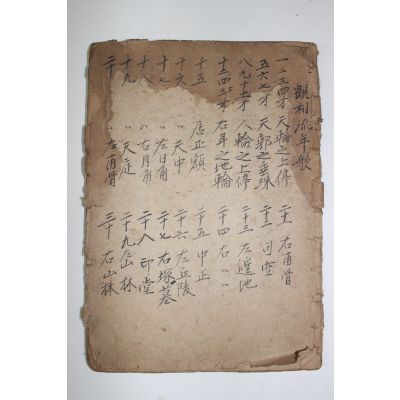 觀相流年歌
一二三四才 天輪之上停
五六七才 天郭之垂珠
八九十才 人輪之上停
十二 十三 十四才 右耳之地輪
十五 居正額
十六 〃 天中
十七 〃 左日角
十八 〃 右月角
十九 〃 天庭
二十 〃 左甫骨
二十一 右甫骨
二十二 司空
二十三 左邊地
二十四 右〃〃
二十五 中正
二十六 左丘陵
二十七 右塚墓
二十八 印堂
二十九 左山林
三十 右山林